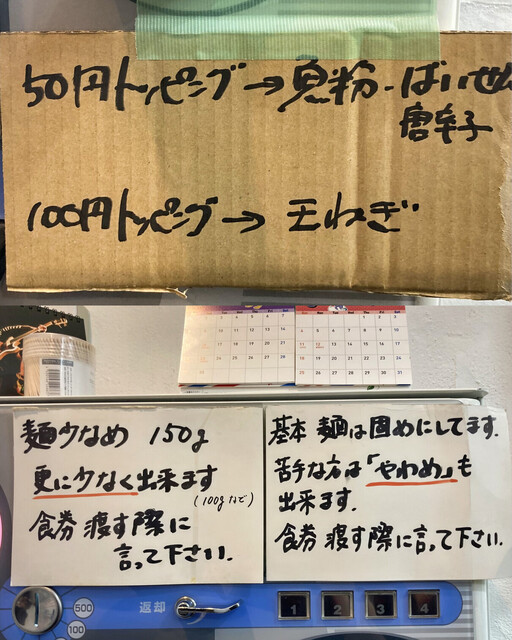 50円トッピング→魚粉-ばいせん
唐辛子
100円トッピング→玉ねぎ
麺少なめ 150g
更に少なく出来ます
(100gなど)
食券 渡す際に
言って下さい.
基本 麺は固めにしてます.
苦手な方は「やわめ」も
出来ます.
食券 渡す際に言って下さい.
500
100
返却
1 2 3 4